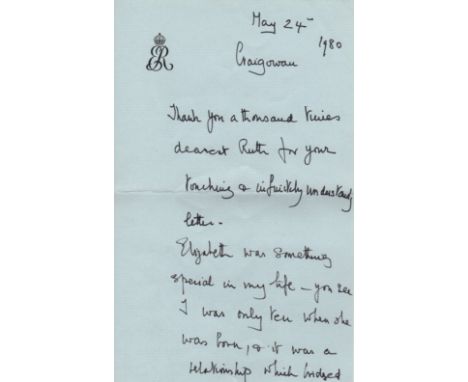 May 24th
1980
ER
Craigowan
Thank you a thousand times
dearest Ruth for your
touching & infinitely understanding
letter -
Elizabeth was something
special in my life - you see
I was only ten when she
was born, & it was a
relationship which bridged